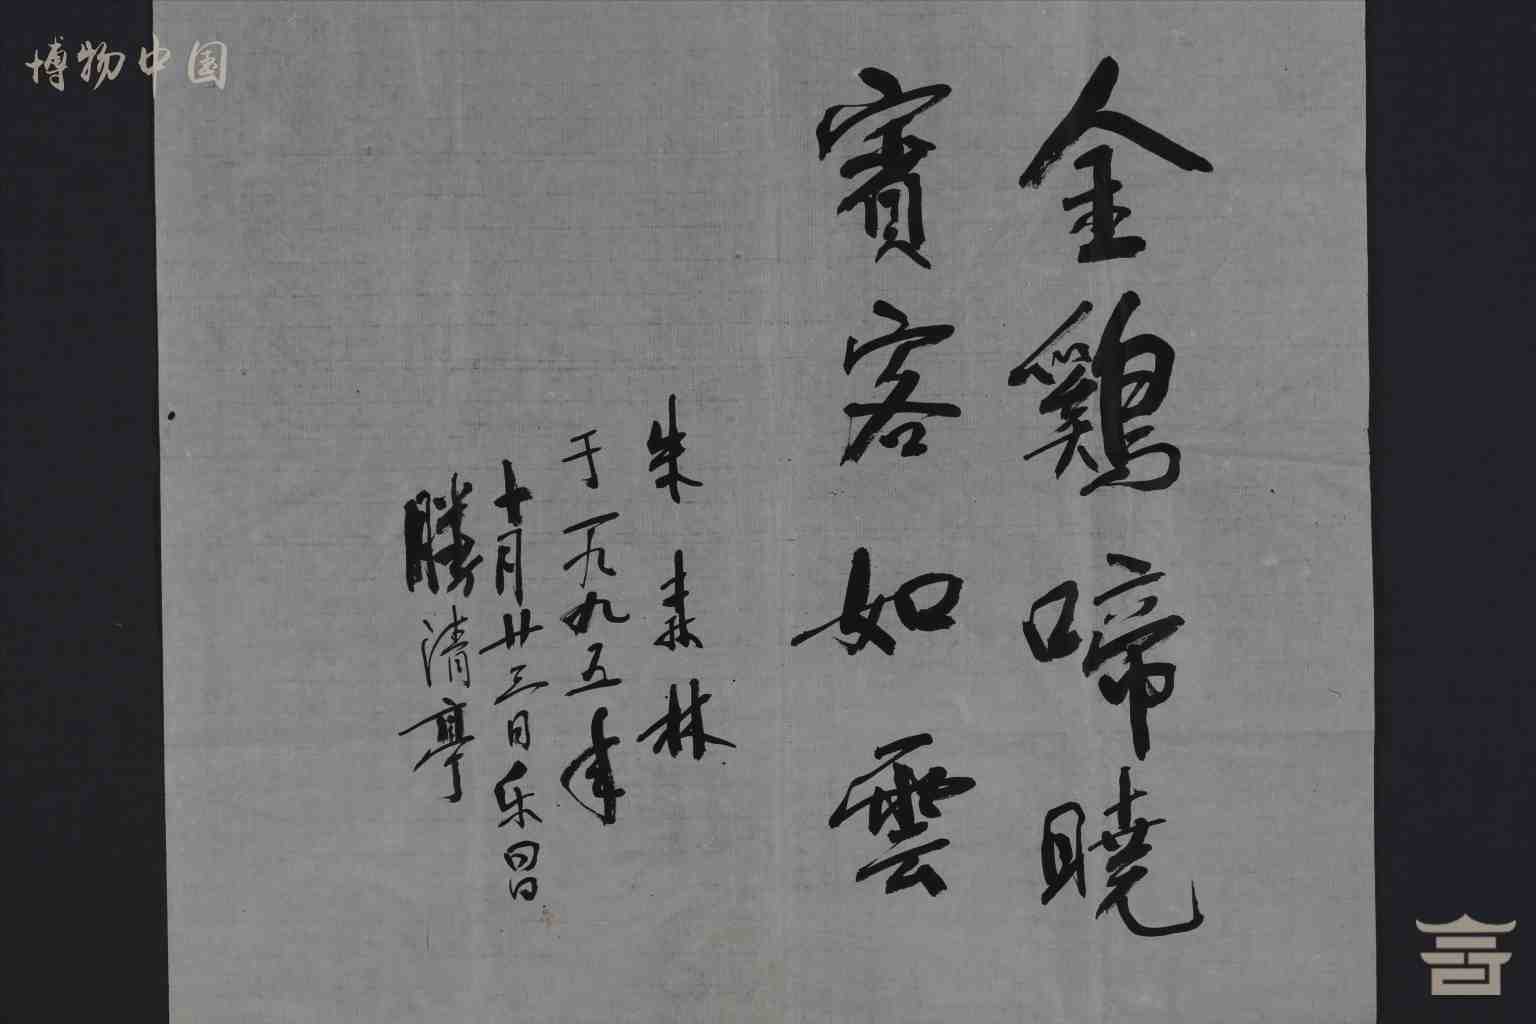 博物中国
金鷄啼曉
賓客如雲
朱森林
于一九九五年
十月廿三日乐昌
勝清亭